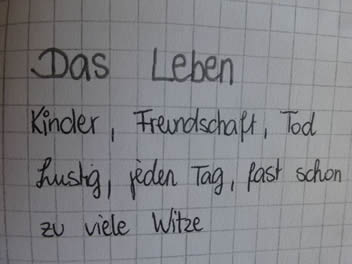 Das Leben
Kinder, Freundschaft, Tod
Lustig, jeden Tag, fast schon
zu viele Witze